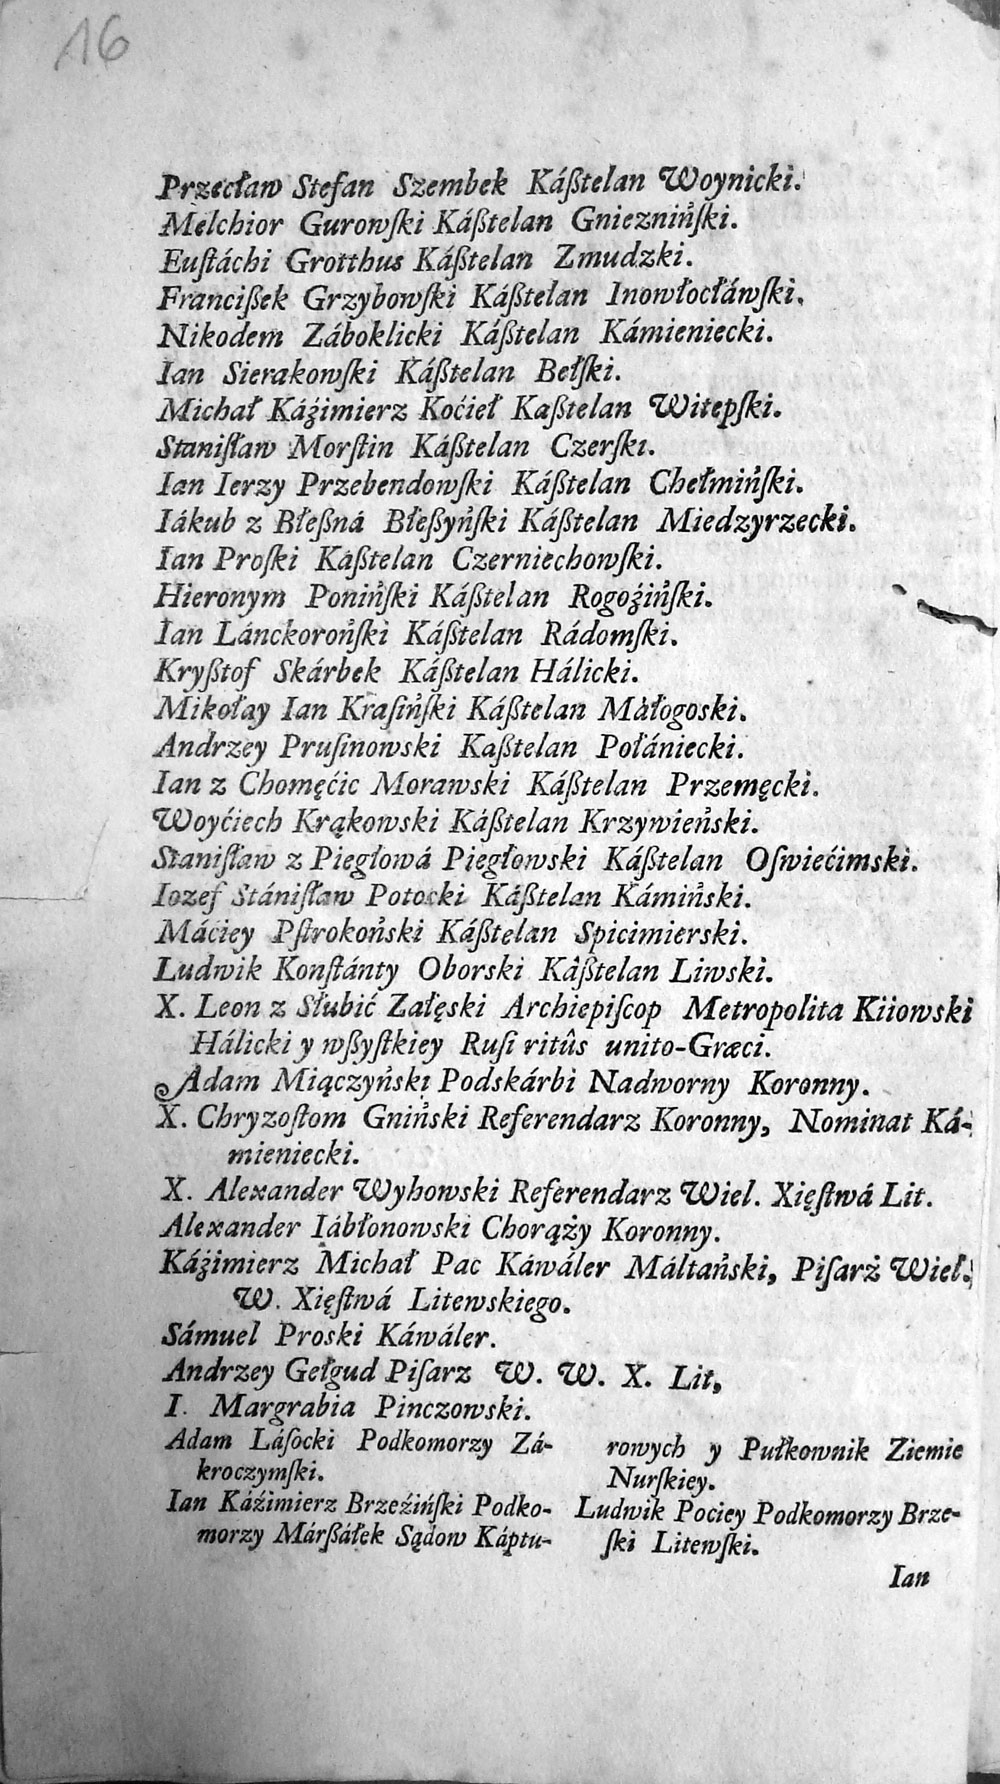 16
Przecław Stefan Szembek Káßtelan Woynicki.
Melchior Gurowſki Káßtelan Gniezninſki.
Euſtáchi Grotthus Káßtelan Zmudzki.
Francißek Grzybowſki Káßtelan Inowłocłáwſki.
Nikodem Záboklicki Káßtelan Kámieniecki.
Ian Sierakowſki Káßtelan Bełſki.
Michał Káźimierz Koćieł Kaßtelan Witepſki.
Staniſław Morſtin Káßtelan Czerſki.
Ian Ierzy Przebendowſki Káßtelan Chełmińſki.
Iákub z Błeßná Błeßyńſki Káßtelan Miedzyrzecki.
Ian Proſki Káßtelan Czerniechowſki.
Hieronym Ponińſki Káßtelan Rogoźińſki.
Ian Lánckorońſki Káßtelan Rádomſki.
Kryßtof Skárbek Káßtelan Hálicki.
Mikołay Ian Kraſińſki Káßtelan Máłogoski.
Andrzey Pruſinowski Kaßtelan Połániecki.
Ian z Chomęćic Morawski Káßtelan Przemęcki.
Woyćiech Krąkowski Káßtelan Krzywieński.
Staniſław z Piegłowá Pięgłowski Káßtelan Oſwiećimski.
Iozef Stániſław Potocki Káßtelan Kámiński.
Máciey Pſtrokoński Káßtelan Spicimierski.
Ludwik Konſtánty Oborski Káßtelan Liwski.
X. Leon z Słubić Załęski Archiepiſcop Metropolita Kiiowski
Hálicki y wßyſtkiey Ruſi ritûs unito-Græci.
Adam Miączyński Podskárbi Nadworny Koronny.
X. Chryzoſtom Gniński Referendarz Koronny, Nominat Ká-
mieniecki.
X. Alexander Wyhowski Referendarz Wiel. Xięſtwá Lit.
Alexander Iábłonowski Chorąży Koronny.
Káźimierz Michał Pac Káwáler Máltański, Piſarż Wieł.
W. Xięſtwá Litewskiego.
Sámuel Proski Káwáler.
Andrzey Gełgud Piſarz W. W. X. Lit,
I. Margrabia Pinczowski.
Adam Láſocki Podkomorzy Zá-
kroczymſki.
Ian Káźimierz Brzeźińſki Podko-
morzy Márßáłek Sądow Káptu-
rowych y Pułkownik Ziemie
Nurſkiey.
Ludwik Pociey Podkomorzy Brze-
ſki Litewſki.
Ian